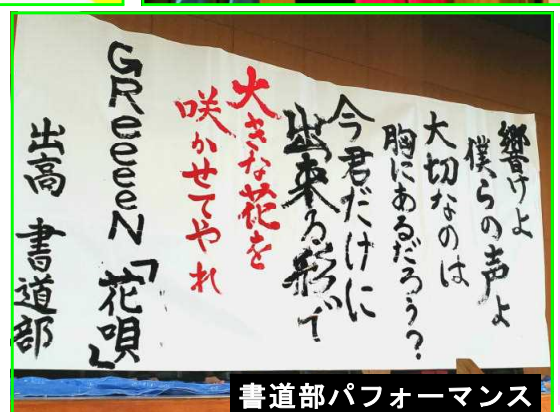 響けよ
僕らの声よ
大切なのは
胸にあるだろう?
今君だけに
出来る形で
大きな花を
咲かせてやれ
GReeeeN「花唄」
出高 書道部
書道部パフォーマンス